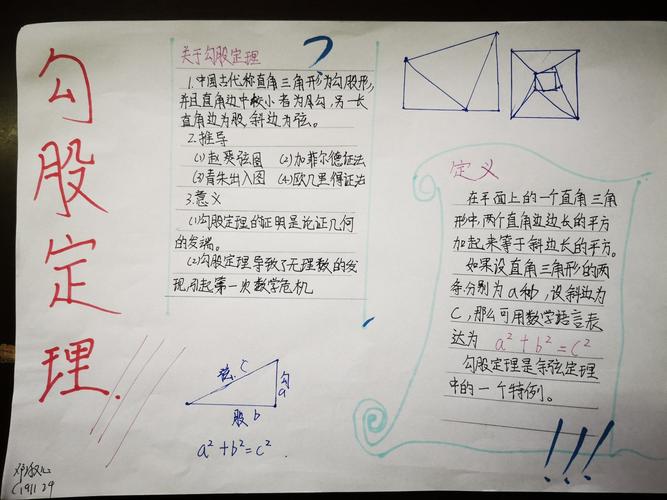 勾股定理.
关于勾股定理
1.中国古代称直角三角形为勾股形,
并且直角边中较小者为勾,另一长
直角边为股,斜边为弦。
2.推导
(1)赵爽弦图 (2)加菲尔德证法
(3)青朱出入图 (4)欧几里得证法
3.意义
(1)勾股定理的证明是论证几何
的发端。
(2)勾股定理导致了无理数的发
现,引起第一次数学危机
定义
在平面上的一个直角三角
形中,两个直角边边长的平方
加起来等于斜边长的平方。
如果设直角三角形的两
条分别为a和b,设斜边为
c,那么可用数学语言表
达为 a²+b²=c²
勾股定理是余弦定理
中的一个特例。
!!!
弦 c
勾
a
股 b
a²+b²=c².
C1911 29